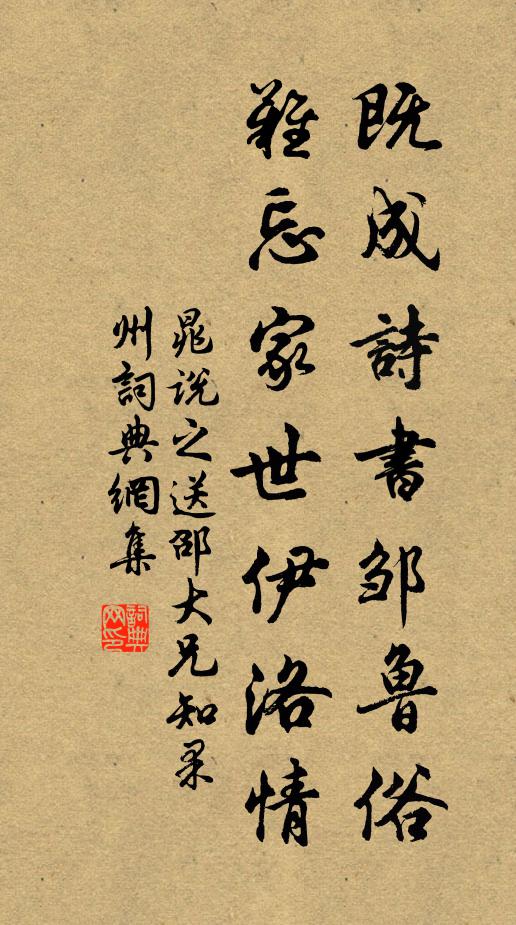 既成詩書邹魯俗
難忘家世伊洛情
晁说之送邵大兄知果
州詞典網集
詞典网印